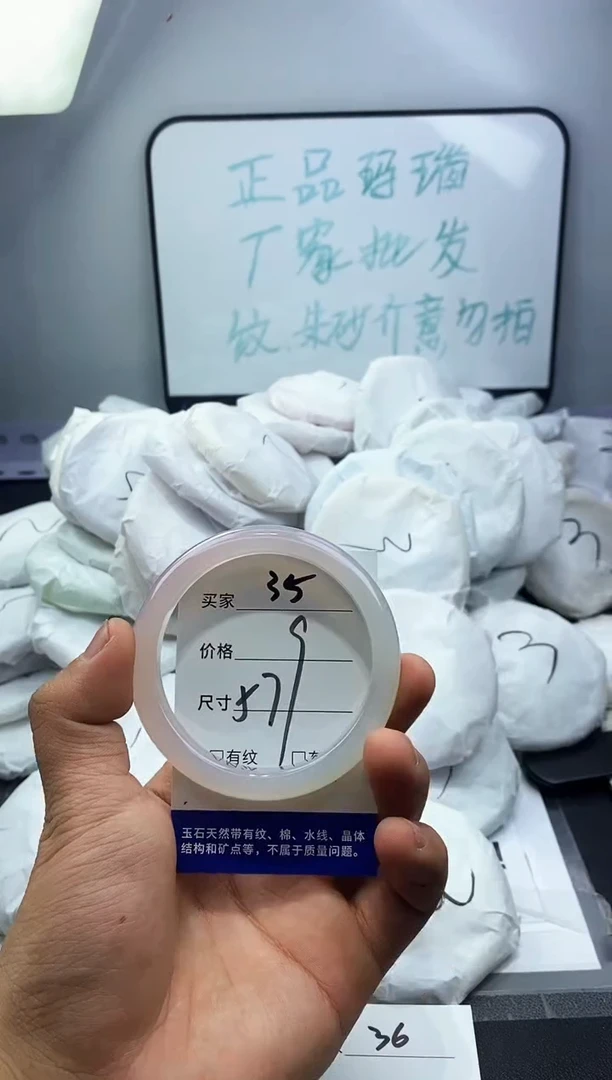 正品玛瑙
厂家批发
纹.朱砂介意勿拍
买家 35
价格
尺寸 57
有纹
玉石天然带有纹、棉、水线、晶体
结构和矿点等，不属于质量问题。
3
3
36